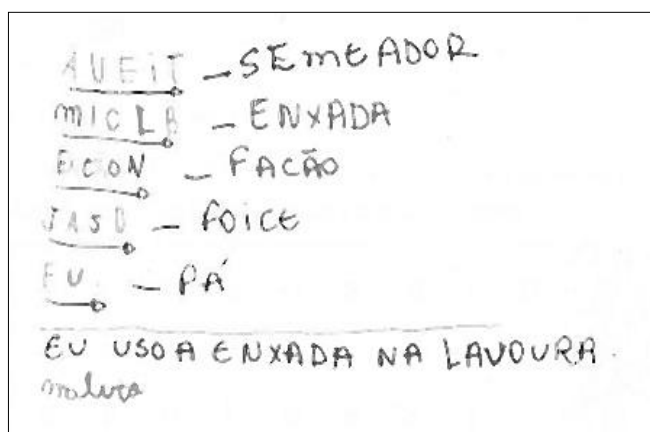 AUEIT - SEMEADOR
MICLB - ENXADA
ECON - FACÃO
JASO - FOICE
EU - PÁ
EU USO A ENXADA NA LAVOURA.